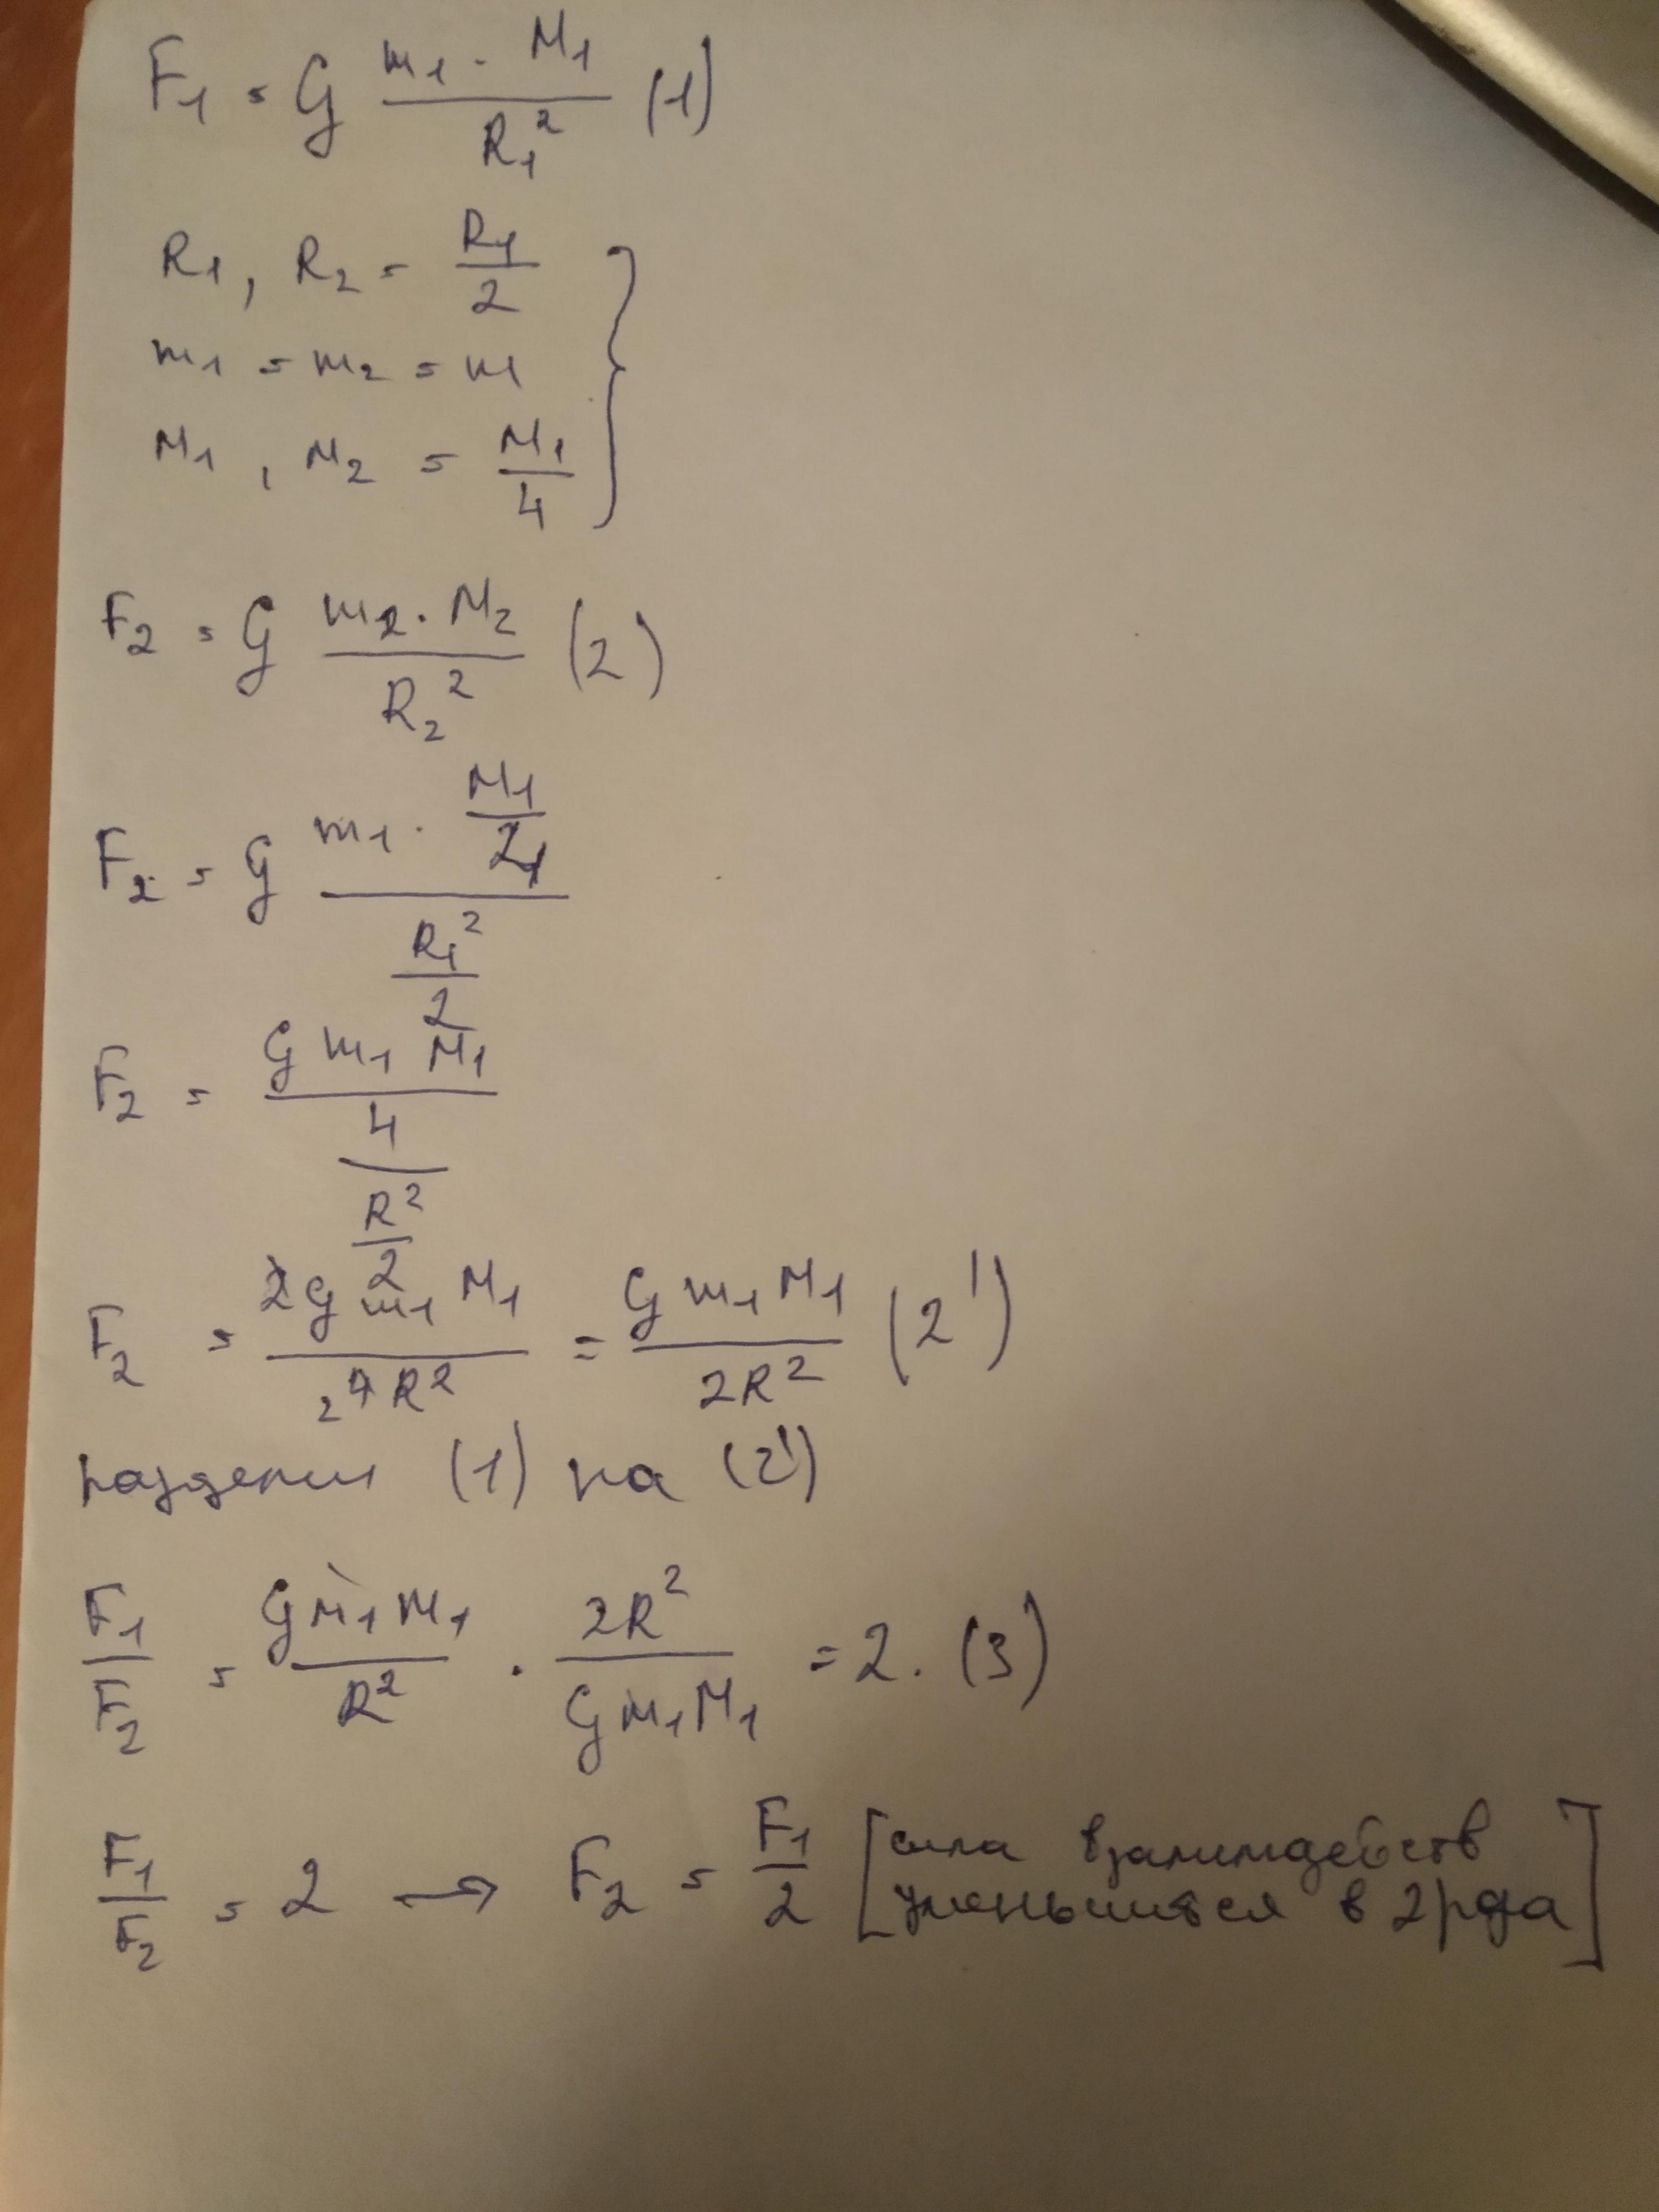 F₁ = G (m₁ · M₁)/(R₁²) (1)
R₁, R₂ = R₁/2
m₁ = m₂ = m
M₁, M₂ = M₁/4
F₂ = G (m₂ · M₂)/(R₂²) (2)
F₂ = G (m₁ · M₁/4)/(R₁²/2)
F₂ = (G m₁ M₁/4)/(R²/2)
F₂ = (2G m₁ M₁)/(4R²) = (G m₁ M₁)/(2R²) (2')
разделим (1) на (2')
F₁/F₂ = (G M₁ m₁)/R² · (2R²)/(G m₁ M₁) = 2. (3)
F₁/F₂ = 2 → F₂ = F₁/2 [сила взаимодейств
уменьшится в 2 раза]